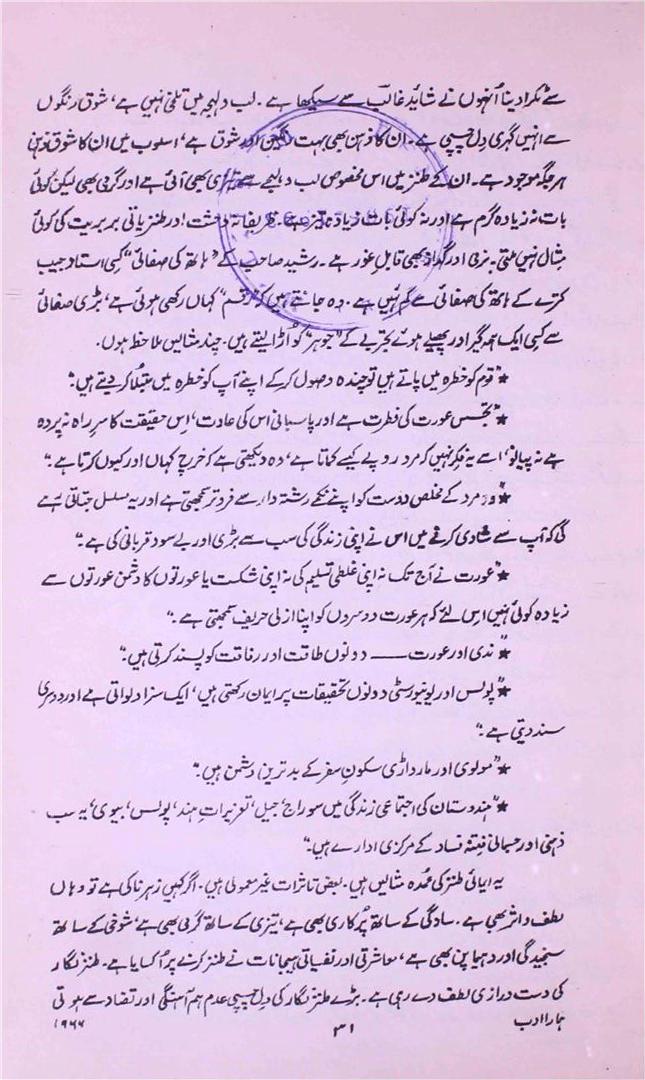 سے ٹکرا دینا اُنہوں نے شاید غالبؔ سے سیکھا ہے ۔ لب و لہجہ میں تلخی نہیں ہے، شوق رنگوں
سے انہیں گہری دِل چسپی ہے ۔ ان کا ذہن بھی بہت رنگین اور شوق ہے، اسلوب میں ان کا شوق ذہن
ہر جگہ موجود ہے ۔ ان کے طنز میں اس مخصوص لب و لہجے سے بھی آئی ہے اور گرمی بھی لیکن کوئی
بات نہ زیادہ گرم ہے اور نہ کوئی بات زیادہ تیز ہے ۔ ظریفانہ دہشت اور طنزیاتی بربریت کی کوئی
مثال نہیں ملتی ۔ نرمی اور گداز بھی قابلِ غور ہے ۔ رشید صاحب کے "ہاتھ کی صفائی" کسی استاد جیب
کترے کے ہاتھ کی صفائی سے کم نہیں ہے ۔ وہ جانتے ہیں کہ "رقم" کہاں رکھی ہوئی ہے، بڑی صفائی
سے کسی ایک ہمہ گیر اور پھیلے ہوئے تجربے کے "جوہر" کو اُڑا لیتے ہیں ۔ چند مثالیں ملاحظہ ہوں ۔
★ "قوم کو خطرہ میں پاتے ہیں تو چندہ وصول کر کے اپنے آپ کو خطرہ میں مبتلا کر دیتے ہیں ۔"
★ "تجسس عورت کی فطرت ہے اور پاسبانی اس کی عادت، اِس حقیقت کا سرِ راہ نہ پردہ
ہے نہ پیالو، اسے یہ فکر نہیں کہ مرد روپے کیسے کماتا ہے، وہ دیکھتی ہے کہ خرچ کہاں اور کیوں کرتا ہے ۔"
★ "وہ مرد کے مخلص دوست کو اپنے نکمے رشتہ دار سے فروتر سمجھتی ہے اور یہ مسلسل جتاتی رہے
گی کہ آپ سے شادی کرنے میں اس نے اپنی زندگی کی سب سے بڑی اور بے سود قربانی کی ہے ۔"
★ "عورت نے آج تک نہ اپنی غلطی تسلیم کی نہ اپنی شکست یا عورتوں کا دشمن عورتوں سے
زیادہ کوئی نہیں اس لئے کہ ہر عورت دوسروں کو اپنا ازلی حریف سمجھتی ہے ۔"
★ "ندی اور عورت —— دونوں طاقت اور رفاقت کو پسند کرتی ہیں ۔"
★ "پولس اور یونیورسٹی دونوں تحقیقات پر ایمان رکھتی ہیں، ایک سزا دلواتی ہے اور دوسری
سند دیتی ہے ۔"
★ "مولوی اور مارواڑی سکونِ سفر کے بدترین دشمن ہیں ۔"
★ "ہندوستان کی اجتماعی زندگی میں سوراج، جیل، تعزیراتِ ہند، پولس، بیوی، یہ سب
ذہنی اور جسمانی فتنہ فساد کے مرکزی ادارے ہیں ۔"
یہ ایمائی طنز کی عُمدہ مثالیں ہیں ۔ بعض تاثرات غیر معمولی ہیں ۔ اگر کہیں زہرناکی ہے تو وہاں
لطف و اثر بھی ہے ۔ سادگی کے ساتھ پُرکاری بھی ہے، تیزی کے ساتھ گرمی بھی ہے، شوخی کے ساتھ
سنجیدگی اور دھیما پن بھی ہے، معاشرتی اور نفسیاتی ہیجانات نے طنز کرنے پر اُکسایا ہے ۔ طنز نگار
کی دست درازی لطف دے رہی ہے ۔ بڑے طنز نگار کی دِل چسپی عدم ہم آہنگی اور تضاد سے ہوتی
ہمارا ادب
۳۱
۱۹۶۶